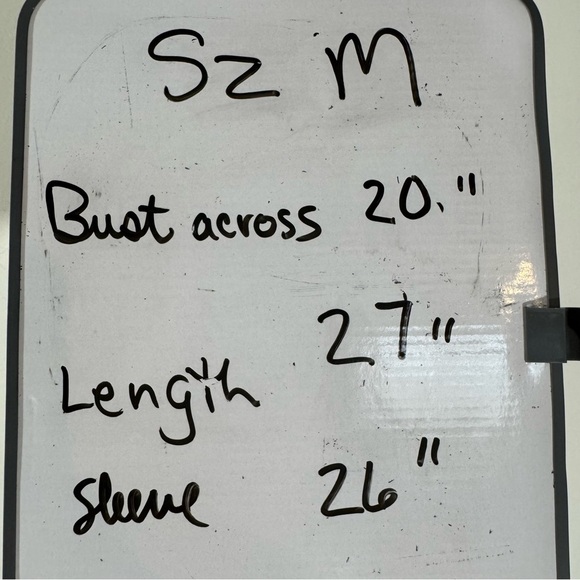 Sz M
Bust across 20."
Length 27"
Sleeve 26"